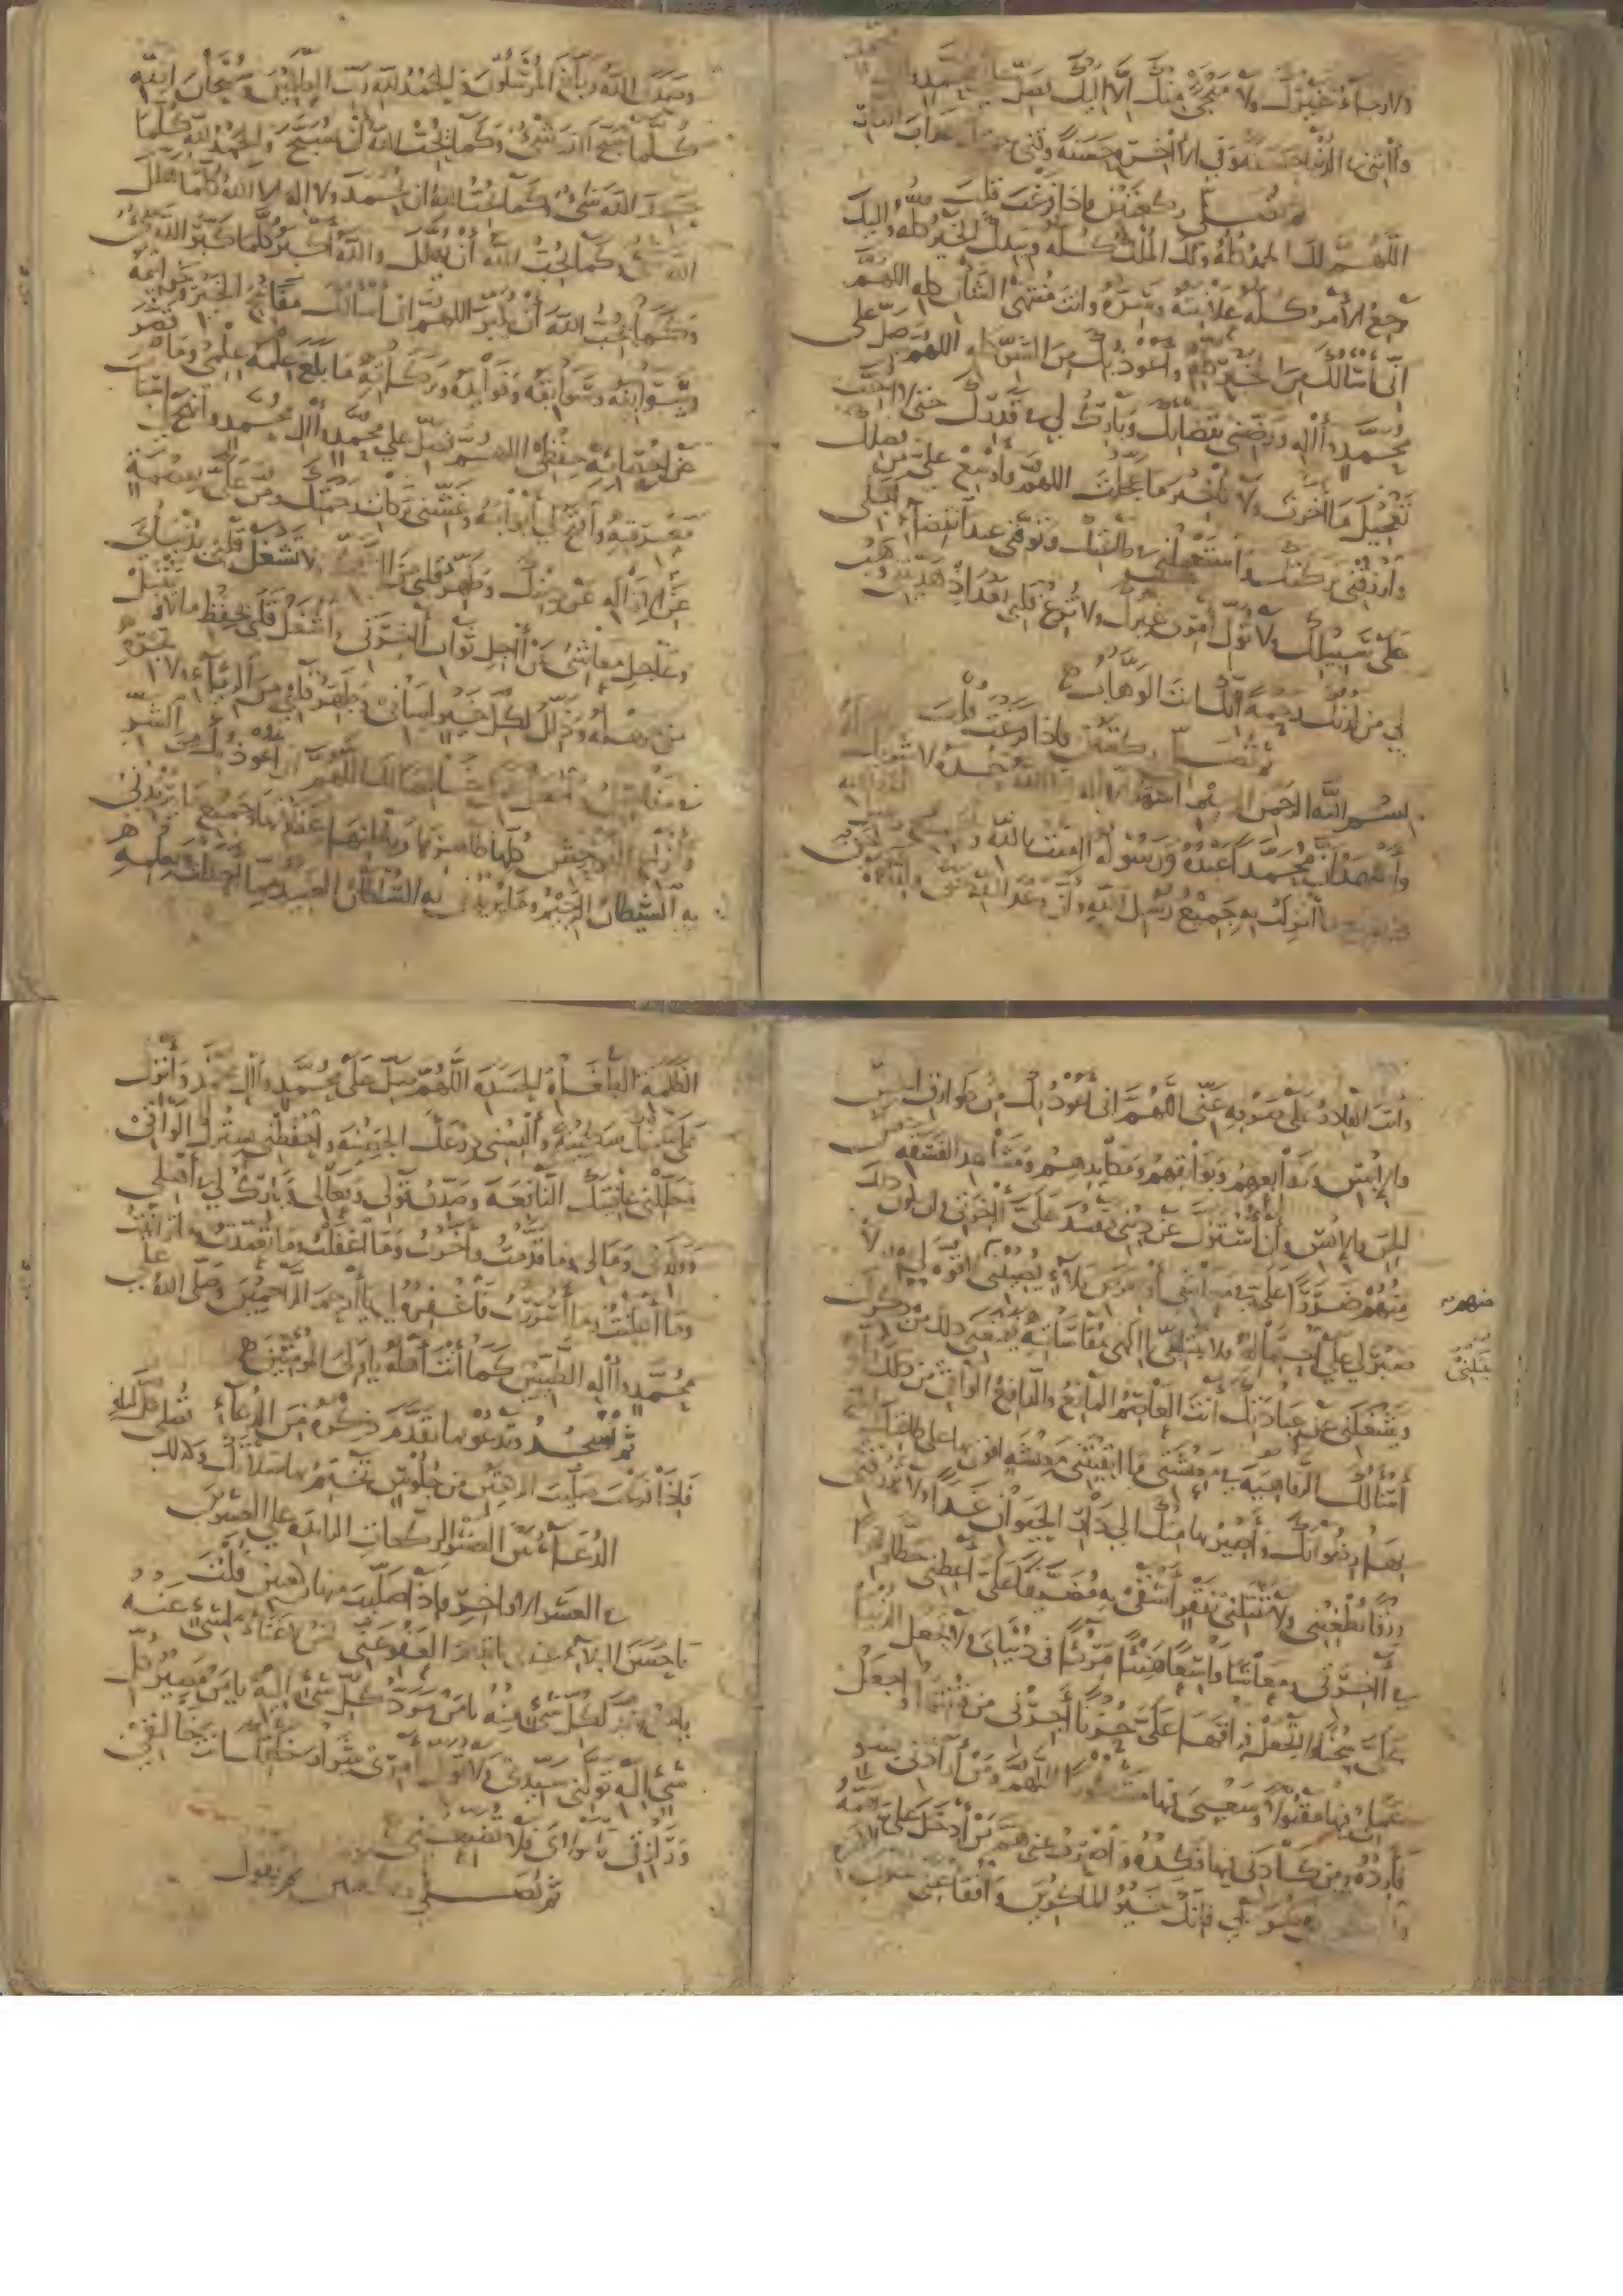 ولا رجاء غيرك ولا منجى منك إلا إليك فصل على محمد
وآتني في الدنيا حسنة وفي الأخرة حسنة وقني عذاب النار
ثم تصلي ركعتين فاذا فرغت قلت
اللهم لك الحمد كله ولك الملك كله وبيدك الخير كله واليك
يرجع الأمر كله علانيته وسره وانت منتهى الشأن كله اللهم
اني أسألك من الخير كله واعوذ بك من الشر كله اللهم صل على
محمد وآله ورضني بقضائك وبارك لي في قدرك حتى لا احب
تعجيل ما أخرت ولا تأخير ما عجلت اللهم واوسع علي من فضلك
وارزقني بركتك واستعملني في طاعتك وتوفني عند انقضاء اجلي
على سبيلك ولا تول أمري غيرك ولا تزغ قلبي بعد اذ هديتني وهب
لي من لدنك رحمة انك انت الوهاب
ثم تصلي ركعتين فاذا فرغت قلت
بسم الله الرحمن الرحيم اشهد ان لا اله الا الله وحده لا شريك له
وأشهد ان محمدا عبده ورسوله امنت بالله و
ما أنزلت به جميع رسل الله وأن وعد الله حق
وصدق الله وبلغ المرسلون والحمد لله رب العالمين وسبحان الله
كلما سبح الله شيء وكما يحب الله أن يسبح والحمد لله كلما
حمد الله شيء وكما يحب الله ان يحمد ولا اله الا الله كلما هلل
الله شيء وكما يحب الله أن يهلل والله أكبر كلما كبر الله شيء
وكما يحب الله أن يكبر اللهم اني أسألك مفاتيح الخير وخواتيمه
وسوابغه وسوابقه وفوائده وبركاته ما بلغ علمه علمي وما قصر
عن احصائه حفظي اللهم فصل على محمد وآل محمد وانهج لي أسباب
معرفته وافتح لي أبوابه وغشني بركات رحمتك ومن علي بعصمة
عن الازالة عن دينك وطهر قلبي من الشك ولا تشغل قلبي بدنياي
وعاجل معاشي عن آجل ثواب آخرتي واشغل قلبي بحفظ ما لا تقبل
مني جهله وذلل لكل خير لساني وطهر قلبي من الرياء ولا تجره
في مفاصلي واجعل عملي خالصا لك اللهم اني أعوذ بك من الشر
وأنواع الفواحش كلها ظاهرها وباطنها وغفلاتها وجميع ما يريدني
به الشيطان الرجيم وما يريدني به السلطان العنيد مما احطت بعلمه
وأنت القادر على صرفه عني اللهم اني أعوذ بك من طوارق الجن
والإنس وزوابعهم وتوابعهم ومكايدهم ومشاهد الفسقة من
الجن والإنس وأن أستزل عن ديني فتفسد علي آخرتي وان يكون ذلك
منهم ضررا علي في معاشي أو من بلاء يصيبني منهم لا قوة لي به ولا
صبر لي على احتماله فلا تبتلني يا الهي بمقاساته فيمنعني ذلك من ذكرك
ويشغلني عن عبادتك أنت العاصم المانع والدافع الواقي من ذلك
أسألك الرفاهية في معيشتي ما ابقيتني معيشة اقوى بها على طاعتك
بها رضوانك وأصير بها منك الى دار الحيوان غدا ولا ترزقني
رزقا يطغيني ولا تبتلني بفقر أشقى به مضيقا علي أعطني حظا وافرا
في آخرتي ومعاشا واسعا هنيئا مريئا في دنياي ولا تجعل الدنيا
علي سجنا ولا تجعل فراقها علي حزنا أجرني من فتنتها واجعل
عملي فيها مقبولا وسعيي فيها مشكورا اللهم ومن أرادني بسوء
فأرده ومن كادني فيها فكده واصرف عني هم من أدخل علي همه
وامكر بمن مكر بي فإنك خير الماكرين وافقأ عني عيون
منهم
تبتلني
الظلمة الطغاة الحسدة اللهم صل على محمد وآل محمد وأنزل
علي منك سكينة وألبسني درعك الحصينة واحفظني بسترك الواقي
وجللني عافيتك النافعة وصدق قولي وفعالي وبارك لي في أهلي
وولدي ومالي وما قدمت وأخرت وما اغفلت وما تعمدت وما توانيت
وما أعلنت وما أسررت فاغفره لي يا أرحم الراحمين وصل اللهم على
محمد وآله الطيبين كما أنت أهله يا ولي المؤمنين
ثم تسجد وتدعو بما تقدم ذكره من الدعاء
فاذا فرغت صليت ركعتين من جلوس تختم بها صلاتك وكذلك
الدعاء من العشر الركعات الزائدة على العشرين
في العشر الاواخر فاذا صليت منها ركعتين قلت
يا حسن البلاء عندي يا قديم العفو عني يا من لا غناء لشيء عنه
يا من لا بد لكل شيء منه يا من مرد كل شيء اليه يا من مصير كل
شيء اليه تولني سيدي ولا تول أمري شرار خلقك أنت خالقي
ورازقي يا مولاي فلا تضيعني
ثم تصلي ركعتين ثم تقول